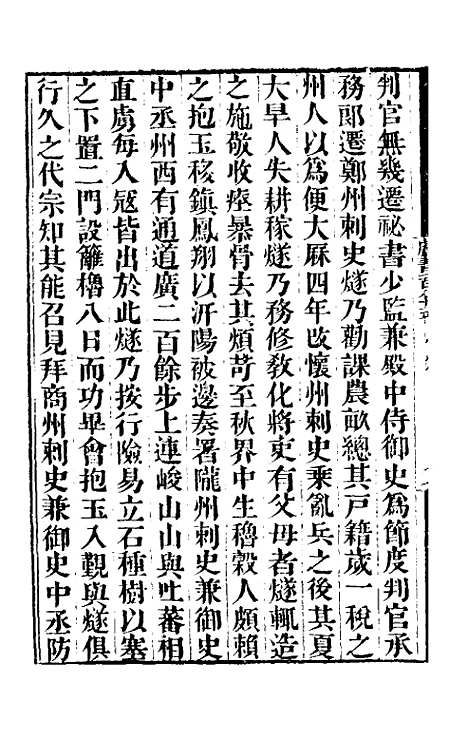 判官無幾遷祕書少監兼殿中侍御史爲節度判官承
務郎遷鄭州刺史燧乃勸課農畝總其戸籍歲一稅之
州人以爲便大厤四年改懷州刺史乘亂兵之後其夏
大旱人失耕稼燧乃務修敎化將吏有父母者燧輒造
之施敬收瘞暴骨去其煩苛至秋界中生穭穀人頗賴
之抱玉移鎮鳳翔以汧陽被邊奏署隴州刺史兼御史
中丞州西有通道廣二百餘步上連峻山山與吐蕃相
直虜每入冦皆出於此燧乃按行險易立石種樹以塞
之下置二門設籬櫓八日而功畢會抱玉入覲與燧俱
行久之代宗知其能召見拜商州刺史兼御史中丞防